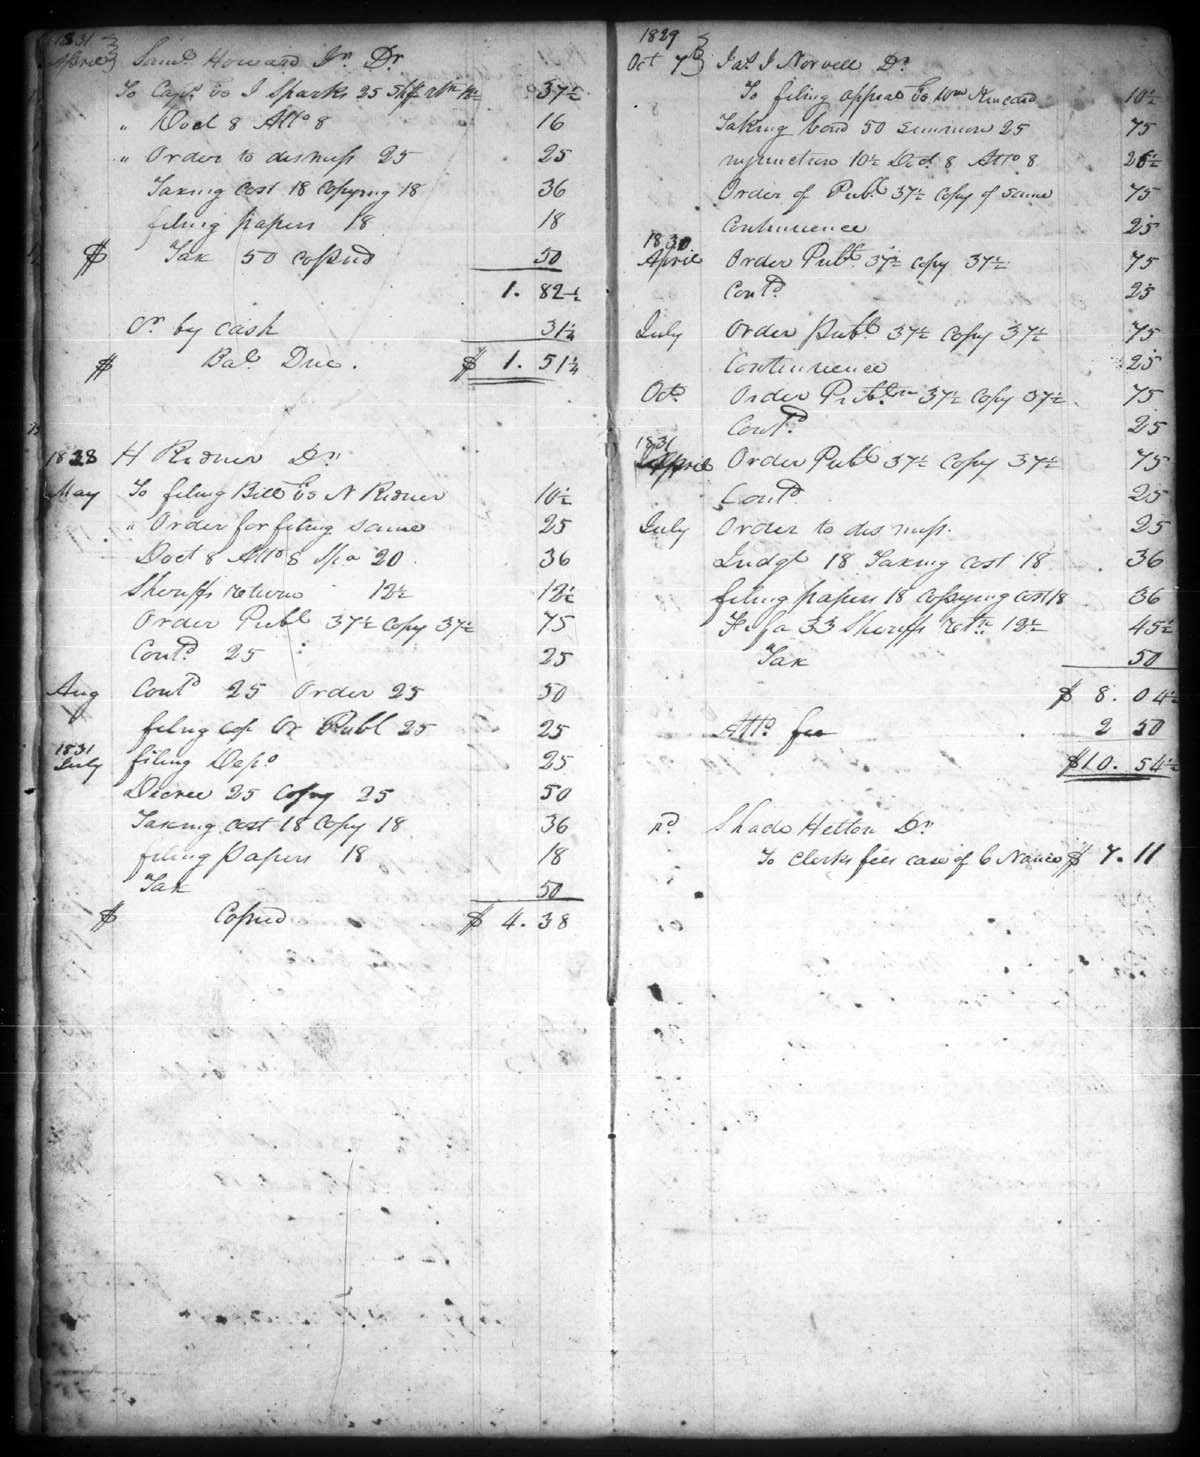 1831
April Saml Howard Jr Dr
To Caps vs J Sparks 25 Shf rtn 12½ 37½
" Doct 8 Atto 8 16
" Order to dismiss 25 25
Taxing cost 18 copying 18 36
filing papers 18 18
$ Tax 50 copied 50
1. 82½
Cr by cash 31¼
$ Bal Due. $ 1. 51¼
1828 H Ridner Dr
May To filing Bill vs N Ridner 10½
" Order for filing same 25
Doct 8 Atto 8 Spa 20 36
Sheriffs return 12½ 12½
Order Publ 37½ copy 37½ 75
Contd 25 25
Aug Contd 25 Order 25 50
filing cop Or Publ 25 25
1831
July filing Depo 25
Decree 25 Copy 25 50
Taxing cost 18 Copy 18 36
filing papers 18 18
Tax 50
$ Copied $ 4. 38
1829
Oct 7th Jas J Norvell Dr
To filing appeal vs Wm Kincaid 10½
Taking bond 50 summon 25 75
injunction 10½ Doct 8 Atto 8 26½
Order of Publ 37½ copy of same 75
Continuence 25
1830
April Order Publ 37½ copy 37½ 75
Contd 25
July Order Publ 37½ copy 37½ 75
Continuence 25
Oct Order Publtn 37½ copy 37½ 75
Contd 25
1831
April Order Publ 37½ copy 37½ 75
Contd 25
July Order to dismiss 25
Judgt 18 Taxing cost 18 36
filing papers 18 copying cost 18 36
Fi fa 33 Sheriffs retn 12½ 45½
Tax 50
$ 8. 04½
Atto fee 2 50
$10. 54½
Shade Helton Dr
To clerks fees case of C Nance $ 7. 11